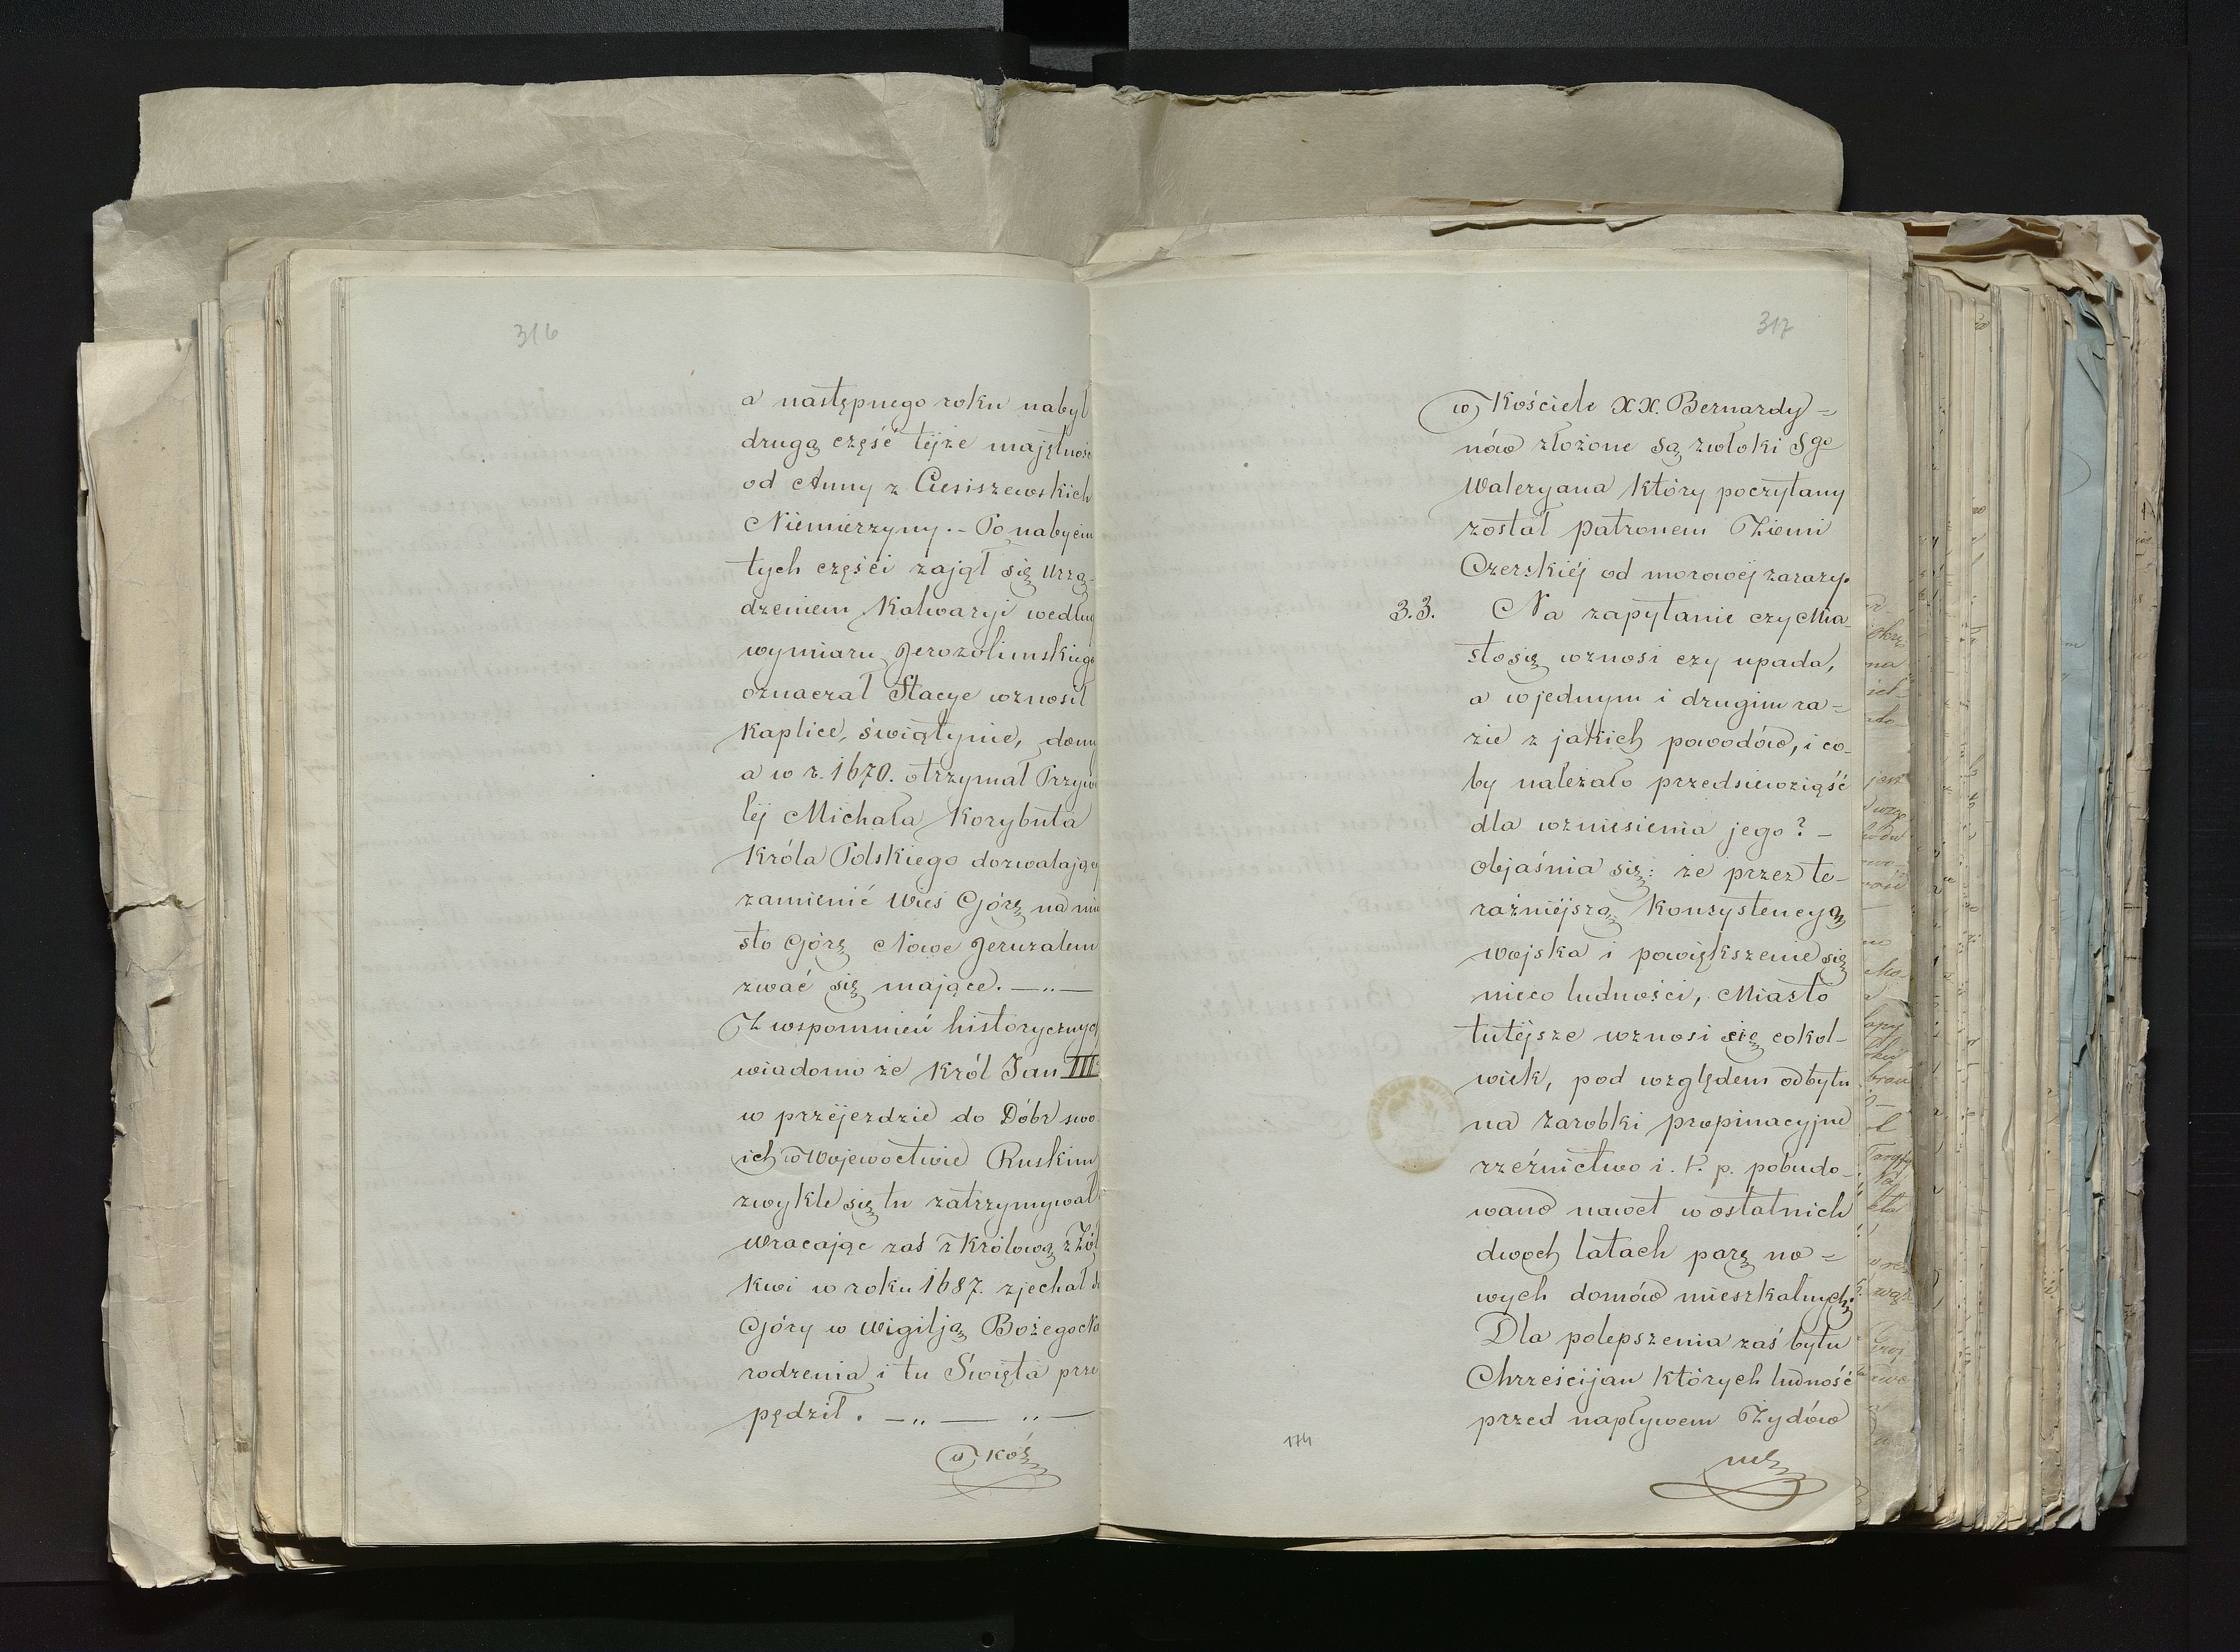 316
a następnego roku nabył
drugą część téjże majętnośc
od Anny z Ciesiszewskich
Niemierzyny. – Po nabyciu
tych części zajął się urzą-
dzeniem Kalwaryi według
wymiaru Jerozolimskiego
oznaczał Stacye wznosił
Kaplice, świątynie, domy
a w r. 1670. otrzymał Przywi
léj Michała Korybuta
Króla Polskiego dozwalający
zamienić Wieś Górę na mia
sto Górę Nowe Jeruzalem
zwać się mające. — „ —
Z wspomnień historycznych
wiadomo że Król Jan III
w przéjezdzie do Dóbr swo
ich w Wojewoctwie Ruskim
zwykle się tu zatrzymywał
Wracając zaś z Królową z Żół
kwi w roku 1687. zjechał d
Góry w Wigilją Bożego Na
rodzenia i tu Święta prze
pędził. — „ — „ —
w Koś
317
w Kościele XX. Bernardy =
nów złożone są zwłoki Sgo
Waleryana który poczytany
został patronem Ziemi
Czerskiéj od morowéj zarazy.
33. Na zapytanie czy Mia-
sto się wznosi czy upada,
a w jednym i drugim ra =
zie z jakich powodów, i co-
by należało przedsiewziąść
dla wzniesienia jego? –
objaśnia się: że przez te-
raźniejszą Konzystencyą
wojska i powiększenie się
nieco ludności, Miasto
tutéjsze wznosi się cokol-
wiek, pod względem odbytu
na zarobki propinacyjne
rzeźnictwo i. t. p. pobudo-
wano nawet w ostatnich
dwóch latach parę no =
wych domów mieszkalnych:
Dla polepszenia zaś bytu
Chrześcijan których ludność
przed napływem Żydów
174